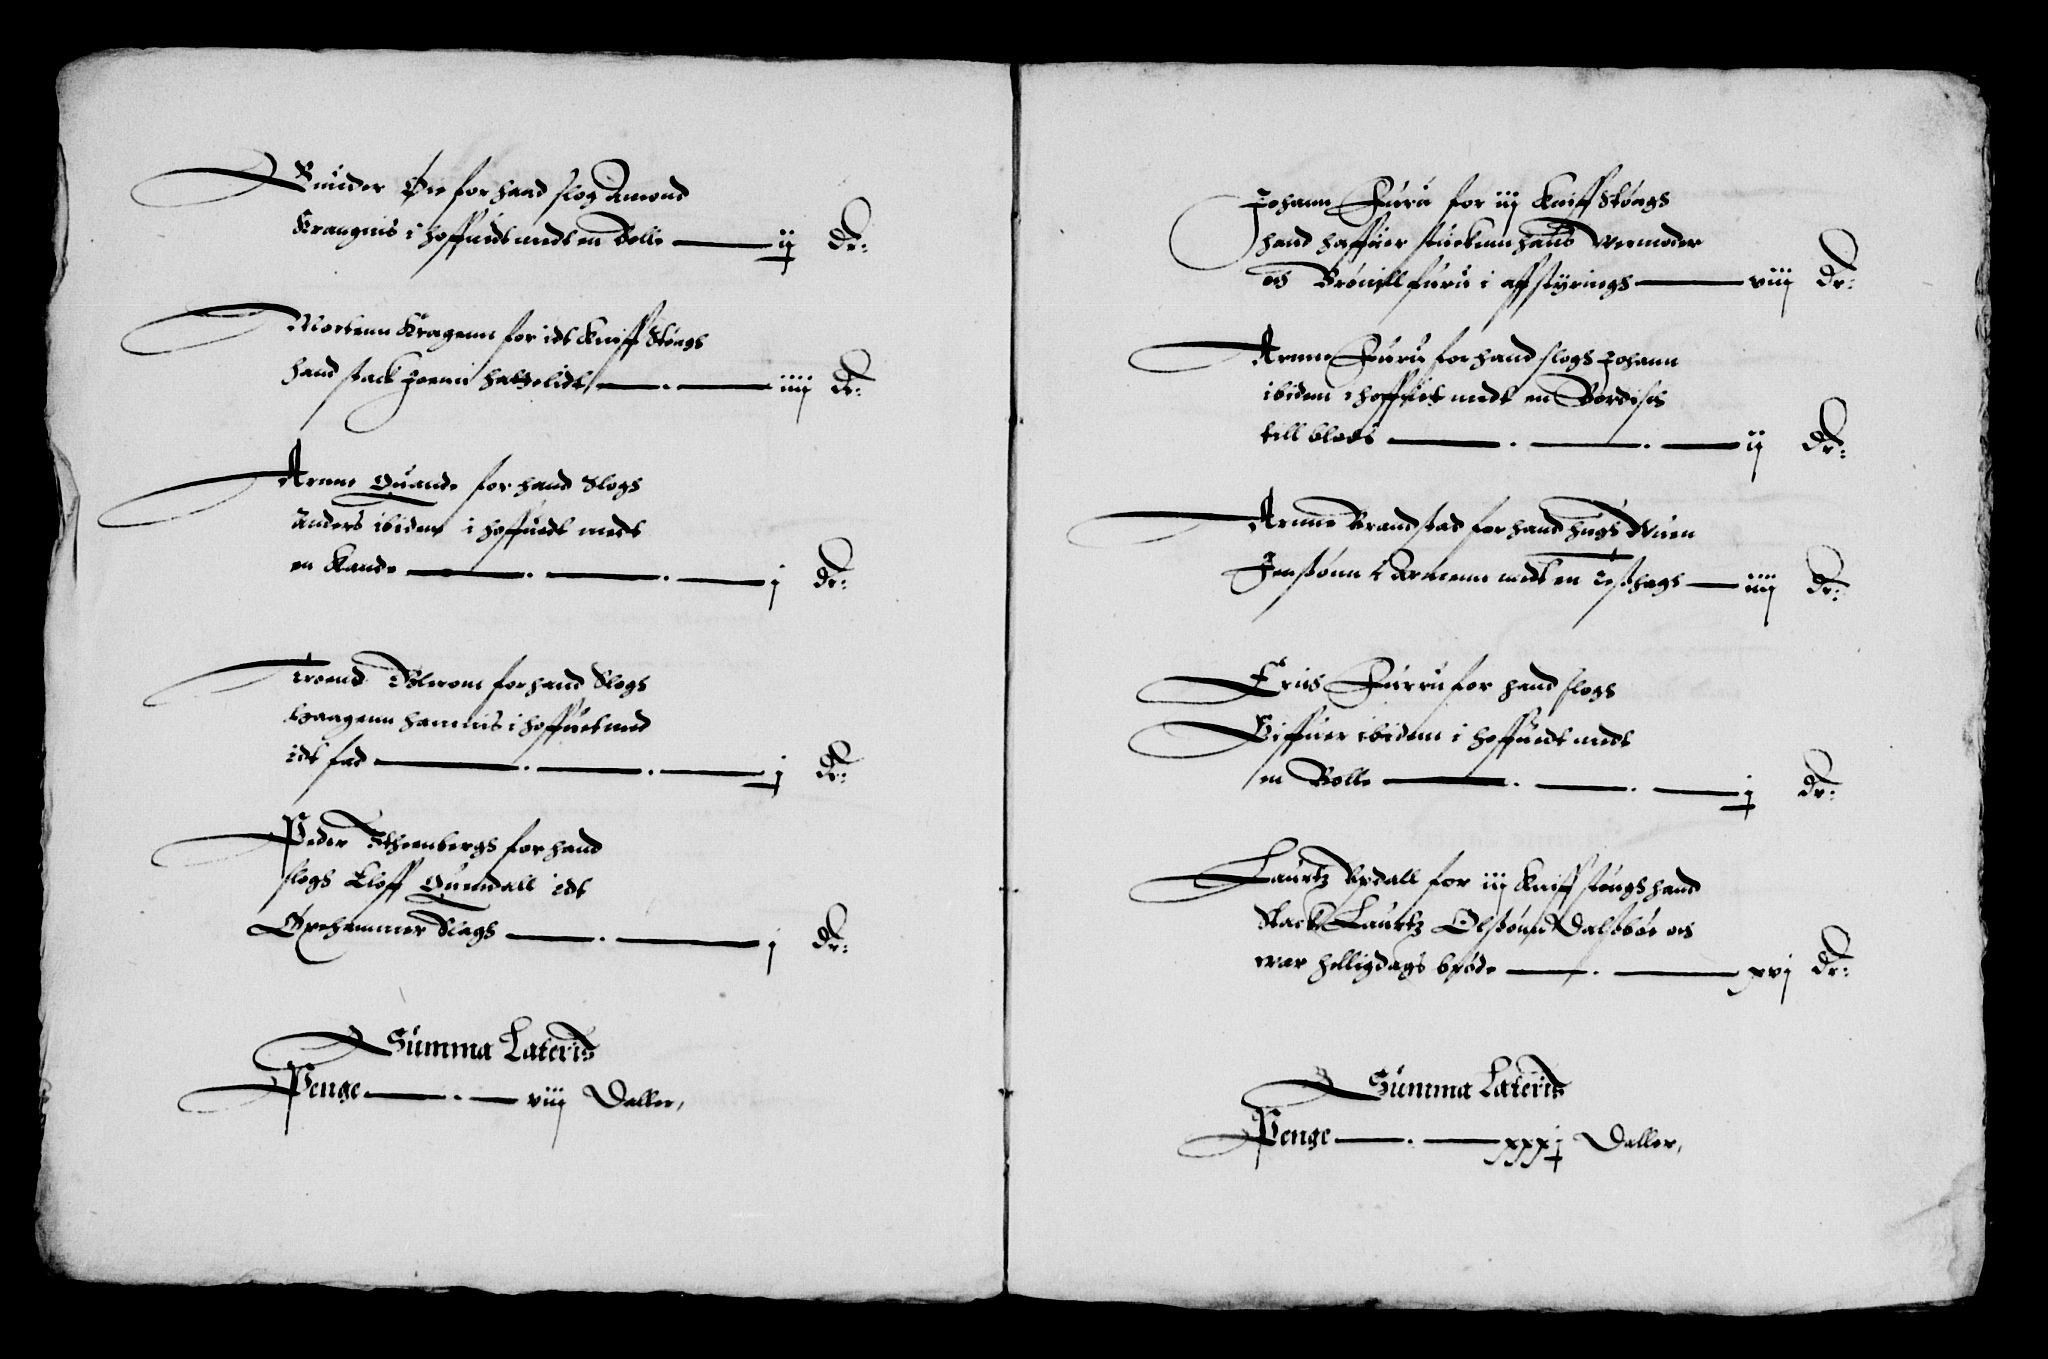 Gunder Øie for hand slog Amond
Krangnis i hoffuedt medt en Bolle — ij dr:
Mortenn Kragenn for idt Kniff Stöngs
hand stack Joenn Hatzelidt — iiij dr:
Arnne Quande for hand Slogs
Anders ibidem i hoffuedt medt
en Kande — j dr:
Troend Blerom for hand Slogs
Haagenn hannis i hoffuet med
idt fad — j dr:
Peder Stheenbergs for hand
slogs Eloff Quendall idt
Øxehammer Slags — j dr:
Summa Lateris
Penge — viij Daller,
Johann Furu for iij Kniff Stöngs
hand haffuer stuckenn hans
och furu i affstyrings — viij dr:
Arnne Furu for hand slogs Johann
ibidem i hoffuet medt en Bordisch
till blods — ij dr:
Arnne Brandstad for hand hugs
Jenssönn i Armenn medt en — iiij dr:
Erich Furru for hand slogs
Siffuer ibidem i hoffuedt medt
en Bolle — j dr:
Lauritz Opdall for iij Kniff stöngs hand
Stack Lauritz Olssönn och
war helligdags bröde — xvj dr:
Summa Lateris
Penge — xxxj Daller,